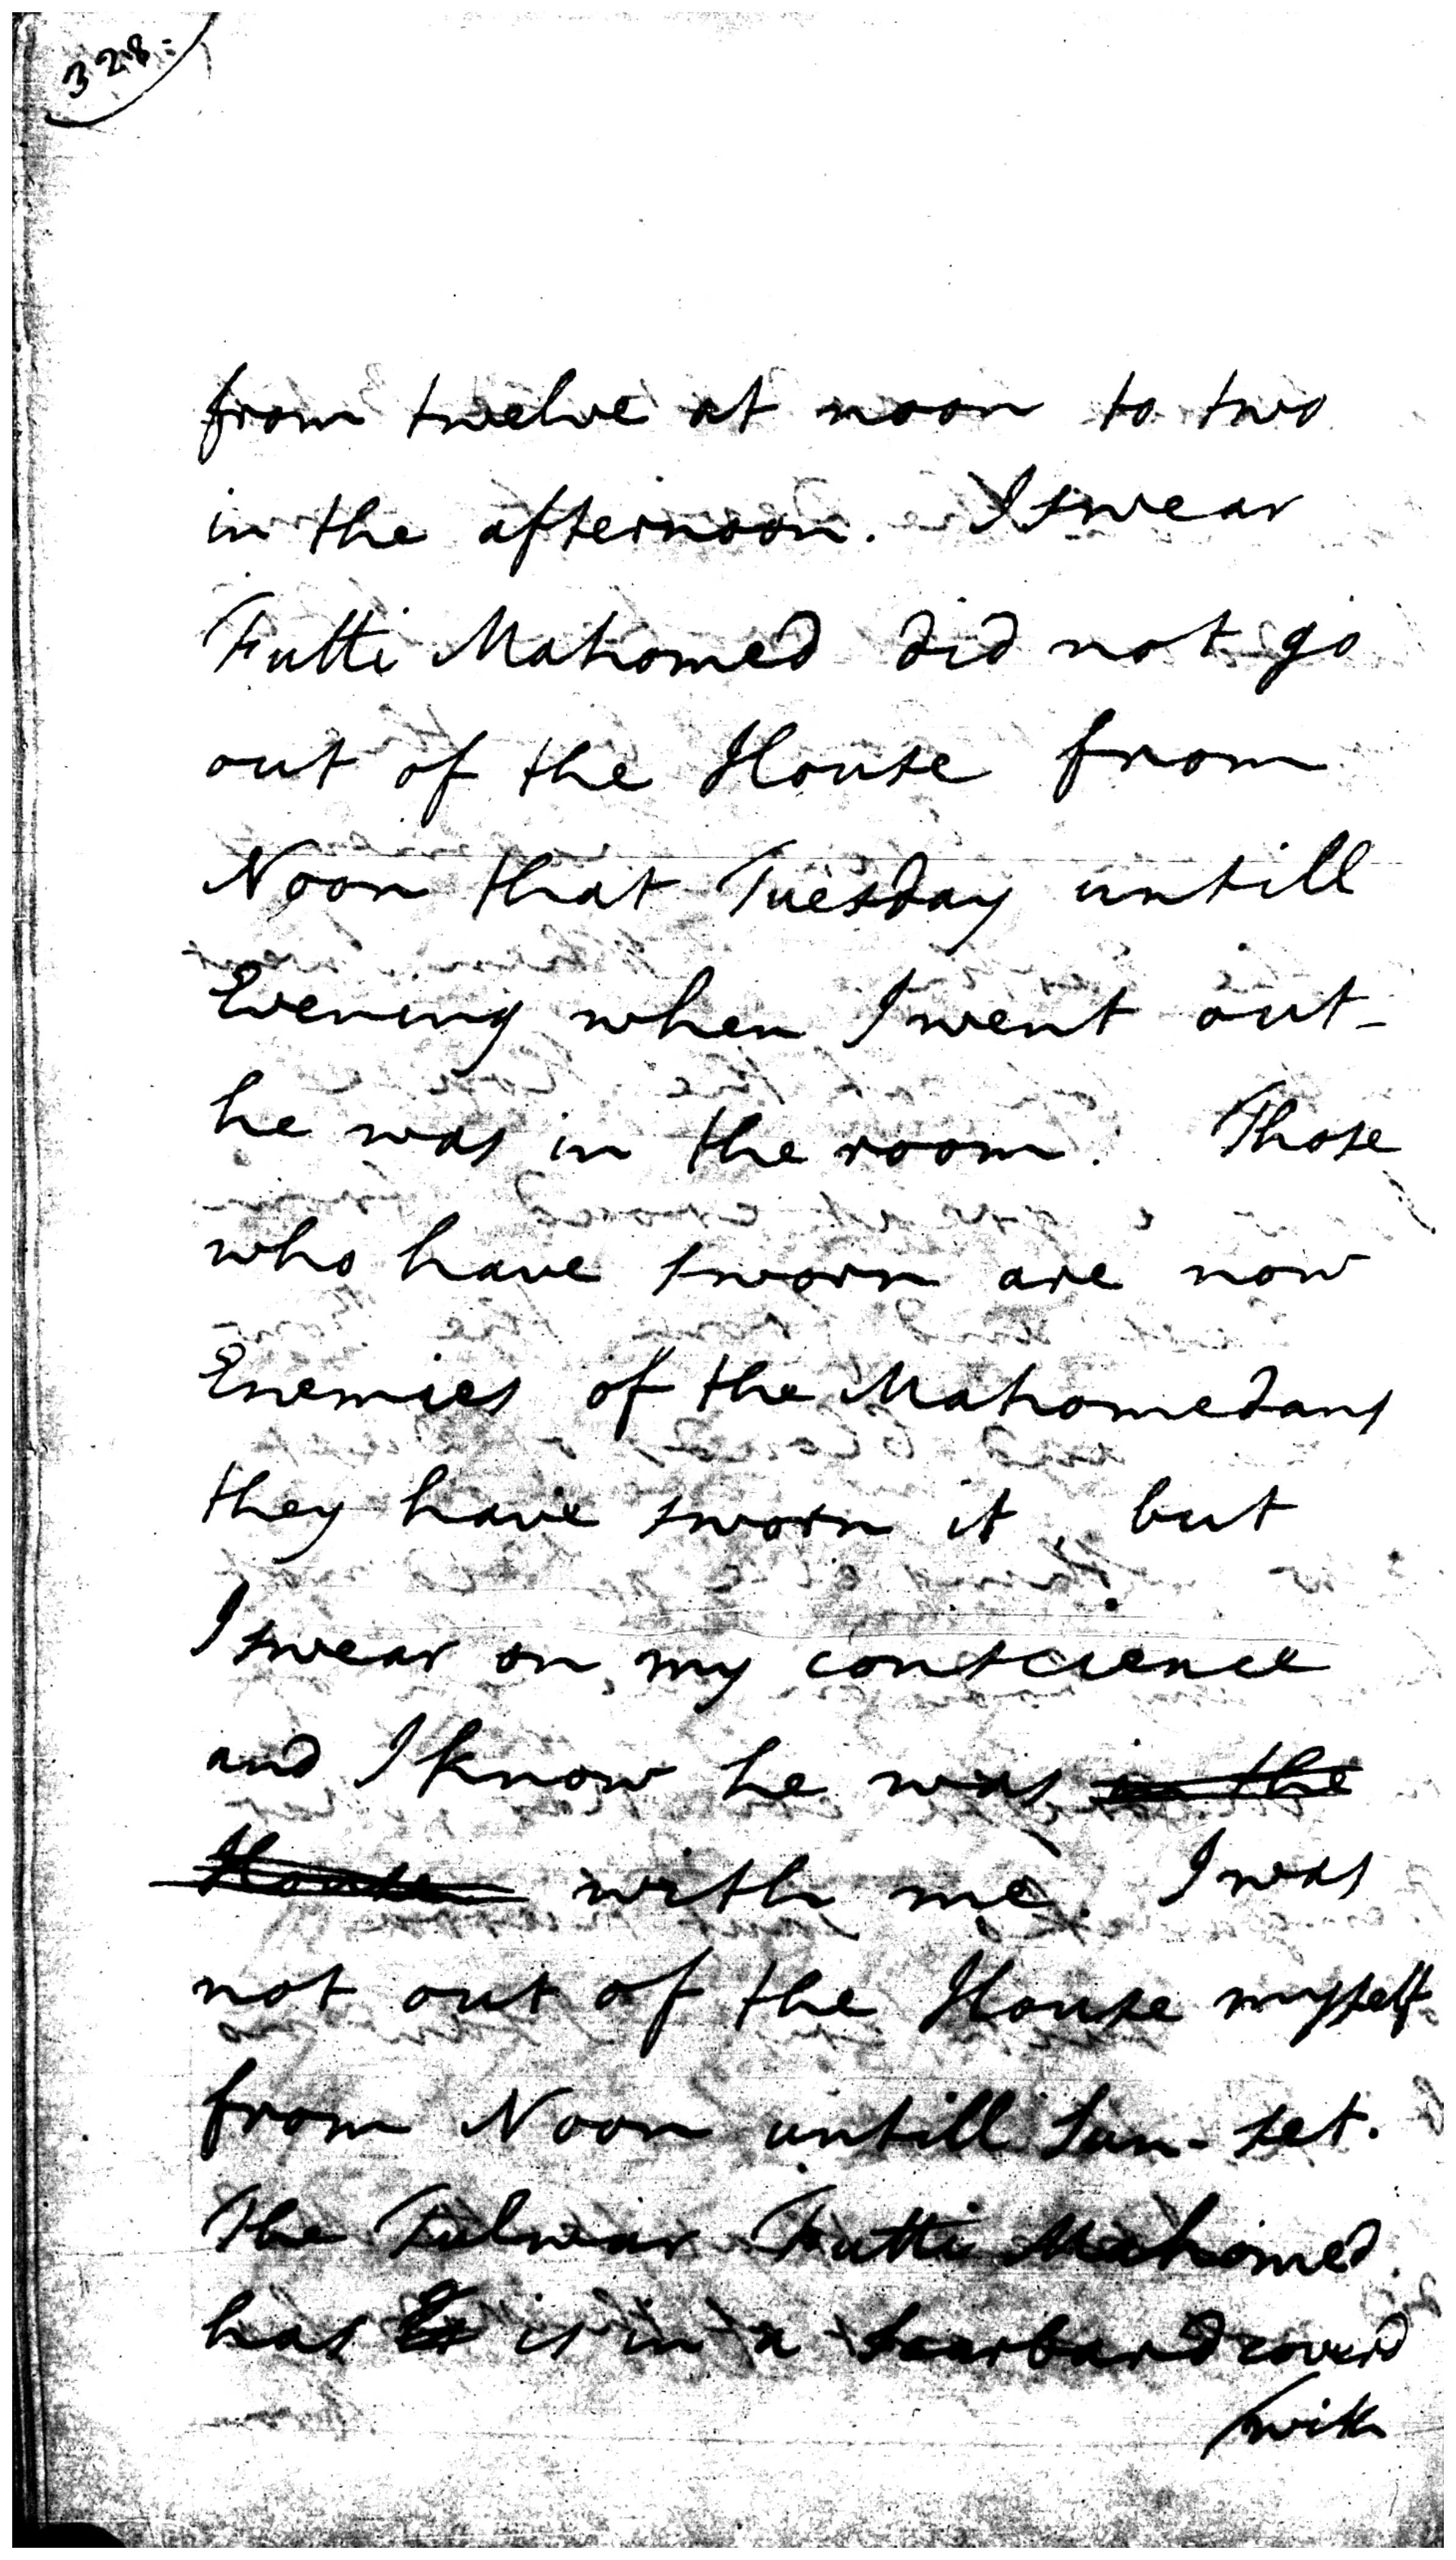 328
from twelve at noon to two
in the afternoon. I swear
Futti Mahomed did not go
out of the House from
Noon that Tuesday untill
Evening when I went out -
he was in the room. Those
who have sworn are now
Enemies of the Mahomedans
they have sworn it, but
I swear on my conscience
and I know he was in the
House with me. I was
not out of the House myself
from Noon untill Sun-set.
The Tulwar Futti Mahomed
has is in a Scarbard coverd
with